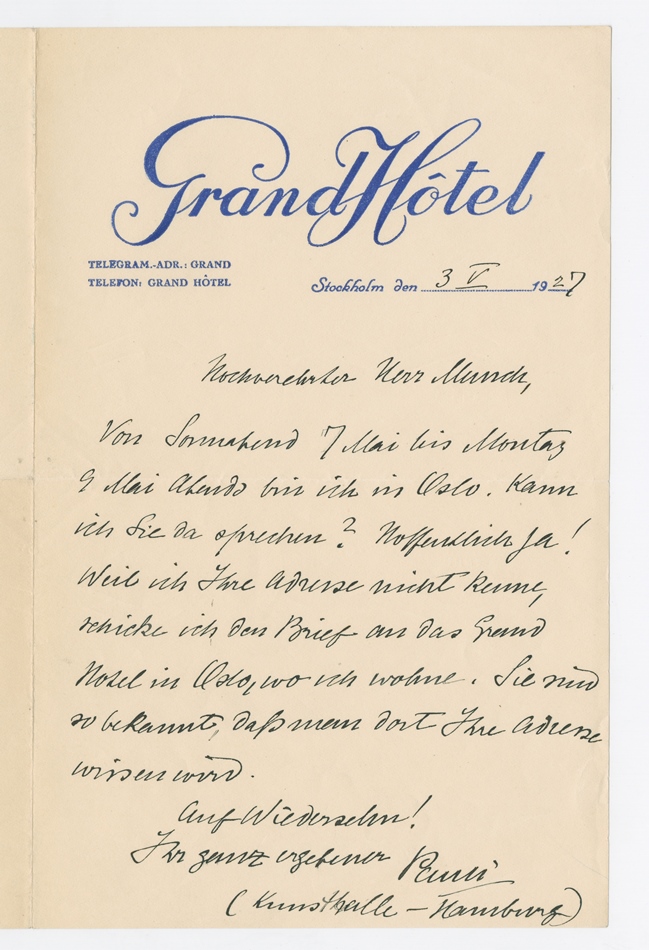 Grand Hôtel
TELEGRAM.-ADR.: GRAND
TELEFON: GRAND HÔTEL
Stockholm den 3 V 1927
Hochverehrter Herr Munch,
Von Sonnabend 7 Mai bis Montag
9 Mai Abends bin ich in Oslo. Kann
ich Sie da sprechen? Hoffentlich Ja!
Weil ich Ihre Adresse nicht kenne,
schicke ich den Brief an das Grand
Hotel in Oslo, wo ich wohne. Sie sind
so bekannt, daß man dort Ihre Adresse
wissen wird.
Auf Wiedersehn!
Ihr ganz ergebener Pauli
(Kunsthalle – Hamburg)